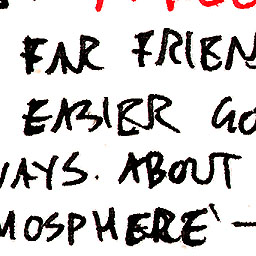 FAR FRIEN
EASIER GO
WAYS. ABOUT
MOSPHERE` –